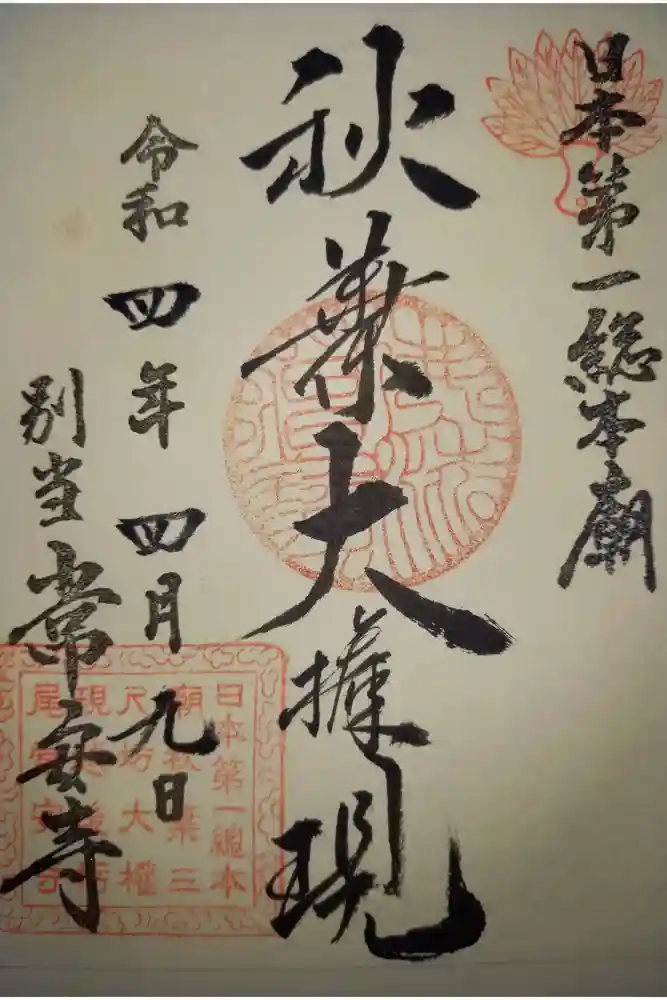 日本第一総本廟
秋葉大権現
令和四年 四月九日
別当 常安寺
日本第一總本
廟秋葉三
尺坊大權